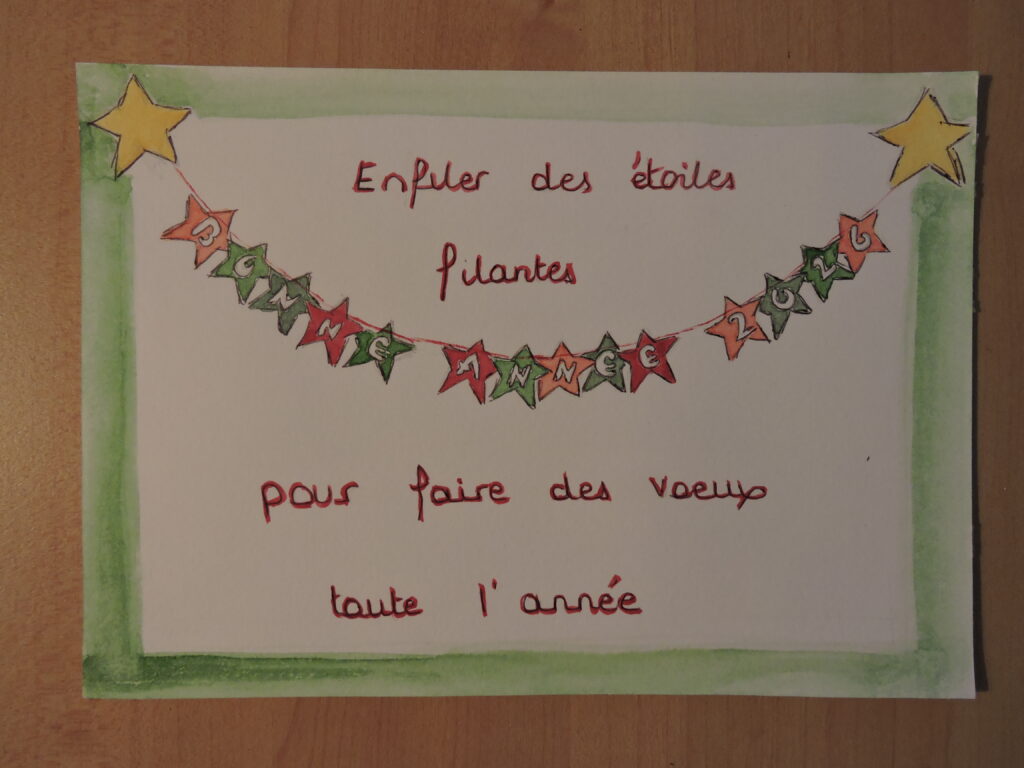 Enfiler des étoiles
filantes
BONNE ANNEE 2026
pour faire des voeux
toute l'année